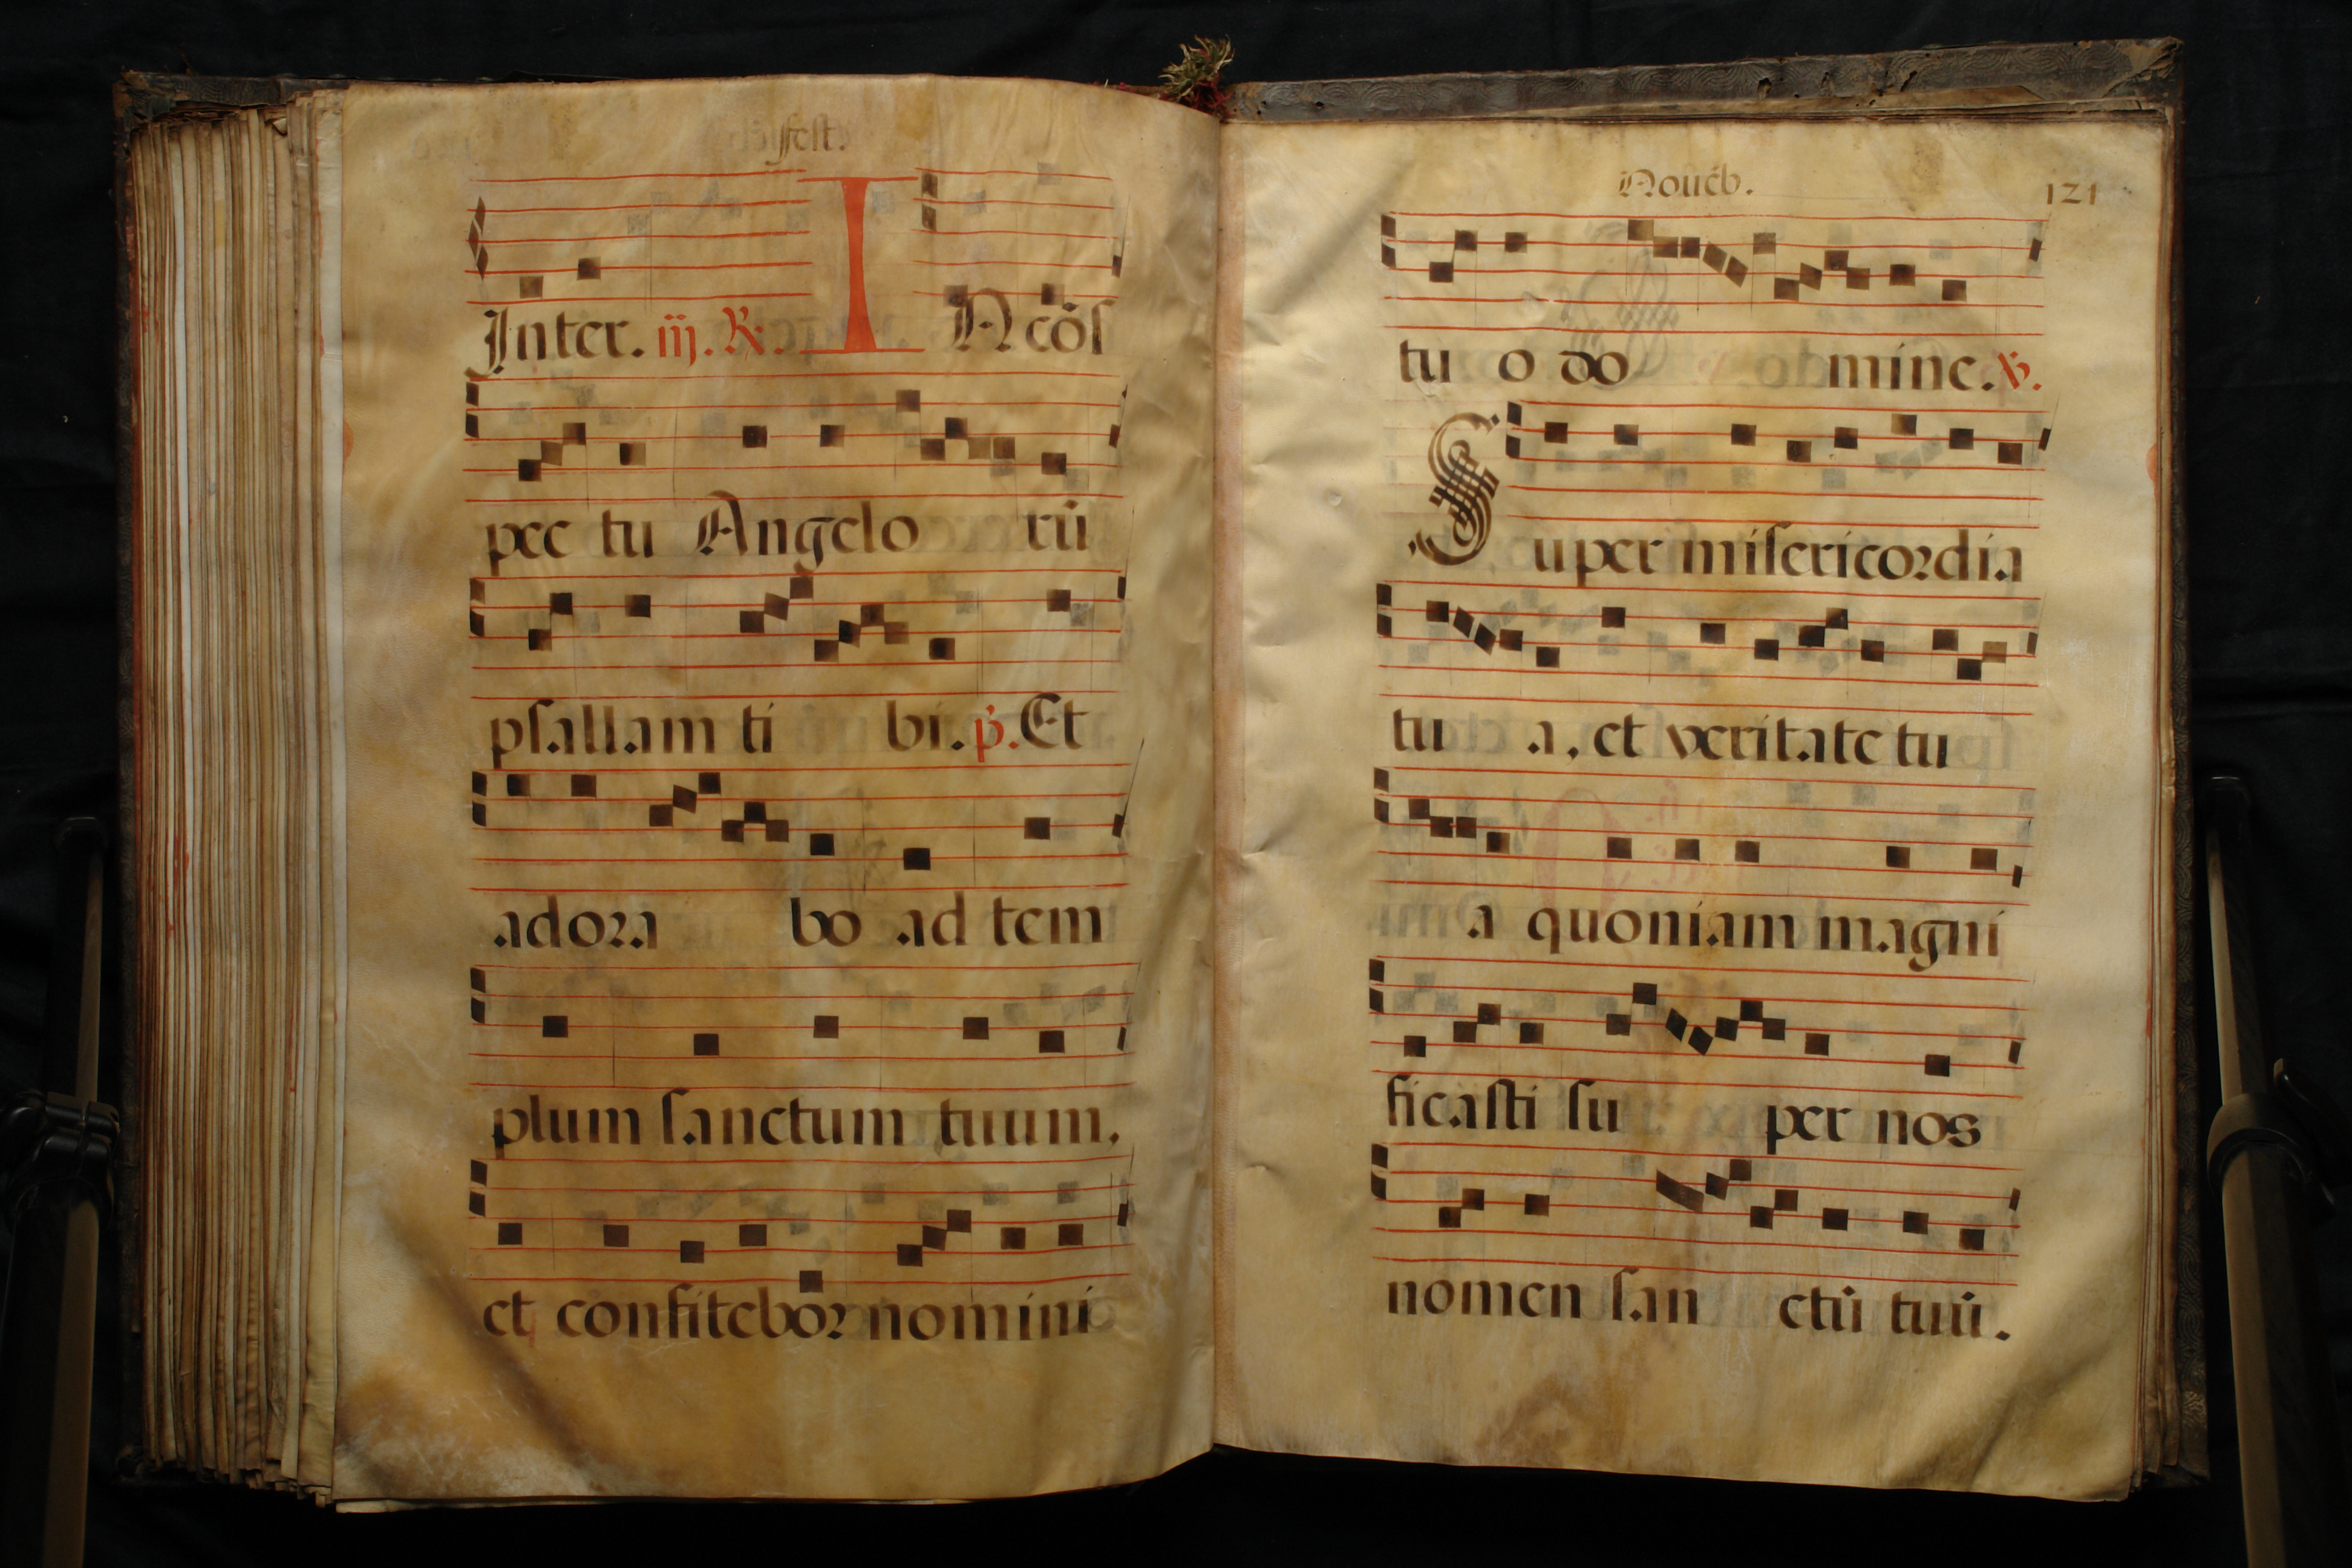 fest.
Inter. iij. R. IN cōs
pec tu Angelo rū
psallam ti bi. p. Et
adora bo ad tem
plum sanctum tuum,
et confitebor nomini
Nouēb. 121
tu o do mine. V.
Super misericordia
tu a, et veritate tu
a quoniam magni
ficasti su per nos
nomen san ctū tuū.